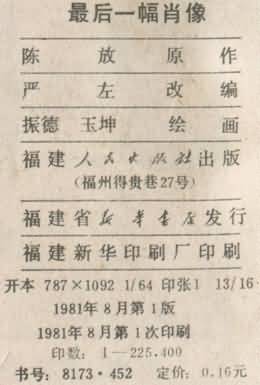 最后一幅肖像
陈放原作
严左改编
振德 玉坤 绘画
福建人民出版社出版
(福州得贵巷27号)
福建省新华书店发行
福建新华印刷厂印刷
开本 787×1092 1/64 印张1 13/16
1981年8月第1版
1981年8月第1次印刷
印数: 1—225.400
书号: 8173·452 定价: 0.16元